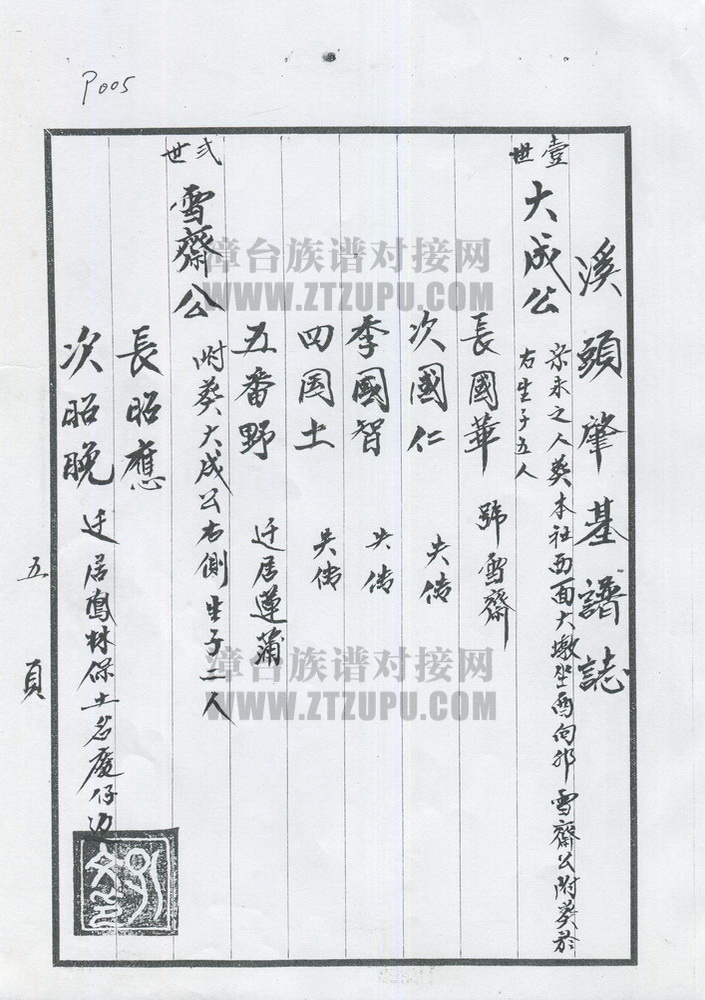 P005
溪頭肇基譜誌
壹世
大成公
宗末之人葬本社西面大墩坐酉向卯雪齋公附葬於
右生子五人
長國華 號雪齋
次國仁 失傳
季國智 失傳
四国土 失傳
五番野 迁居蓮蒲
弍世
雪齋公
附葬大成公右側生子二人
長昭應
次昭晚 迁居鳳林保土名廈仔边
五頁
漳台族谱对接网
WWW.ZTZUPU.COM
漳台族谱对接网
WWW.ZTZUPU.COM